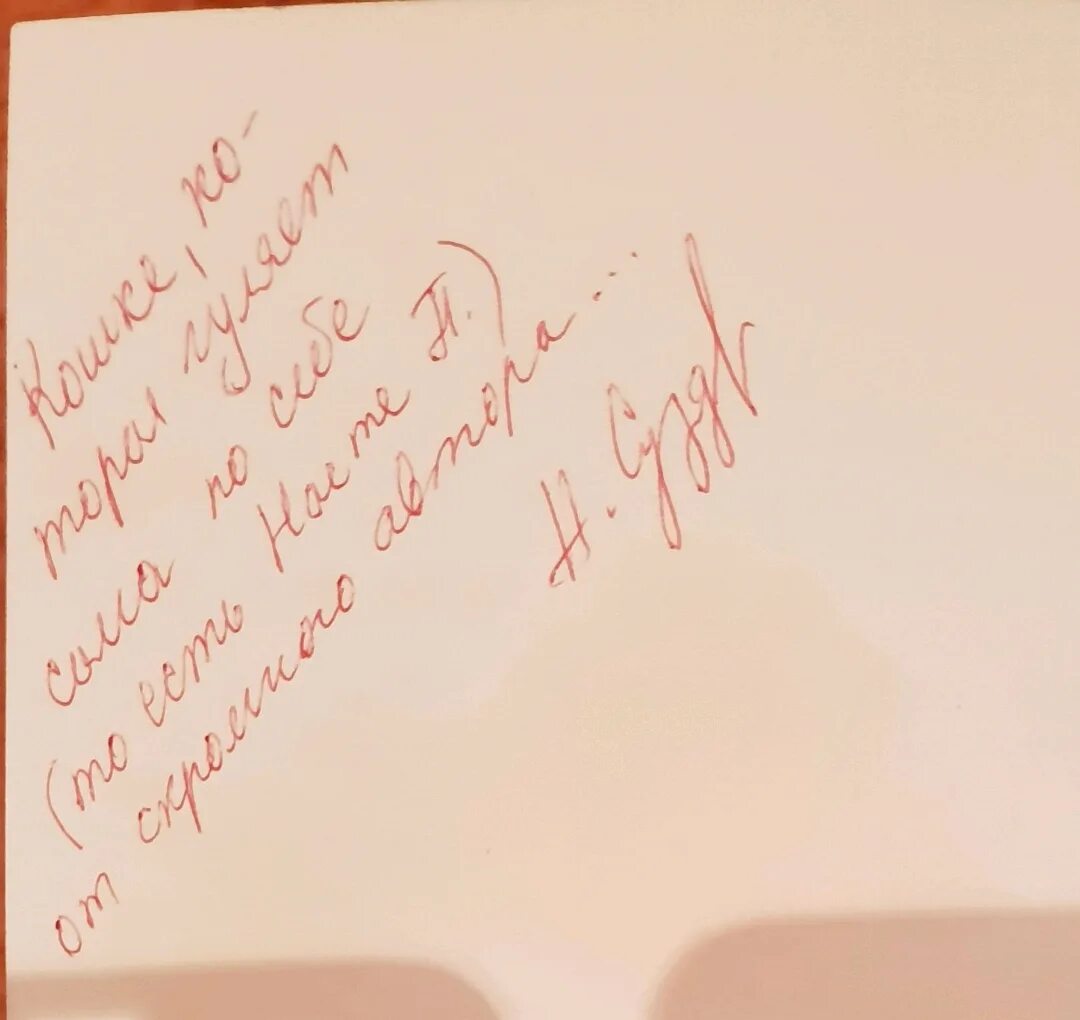 Кошке, ко-
торая гуляет
сама по себе
(то есть Насте П.)
от скромного автора...
Н. Сузд